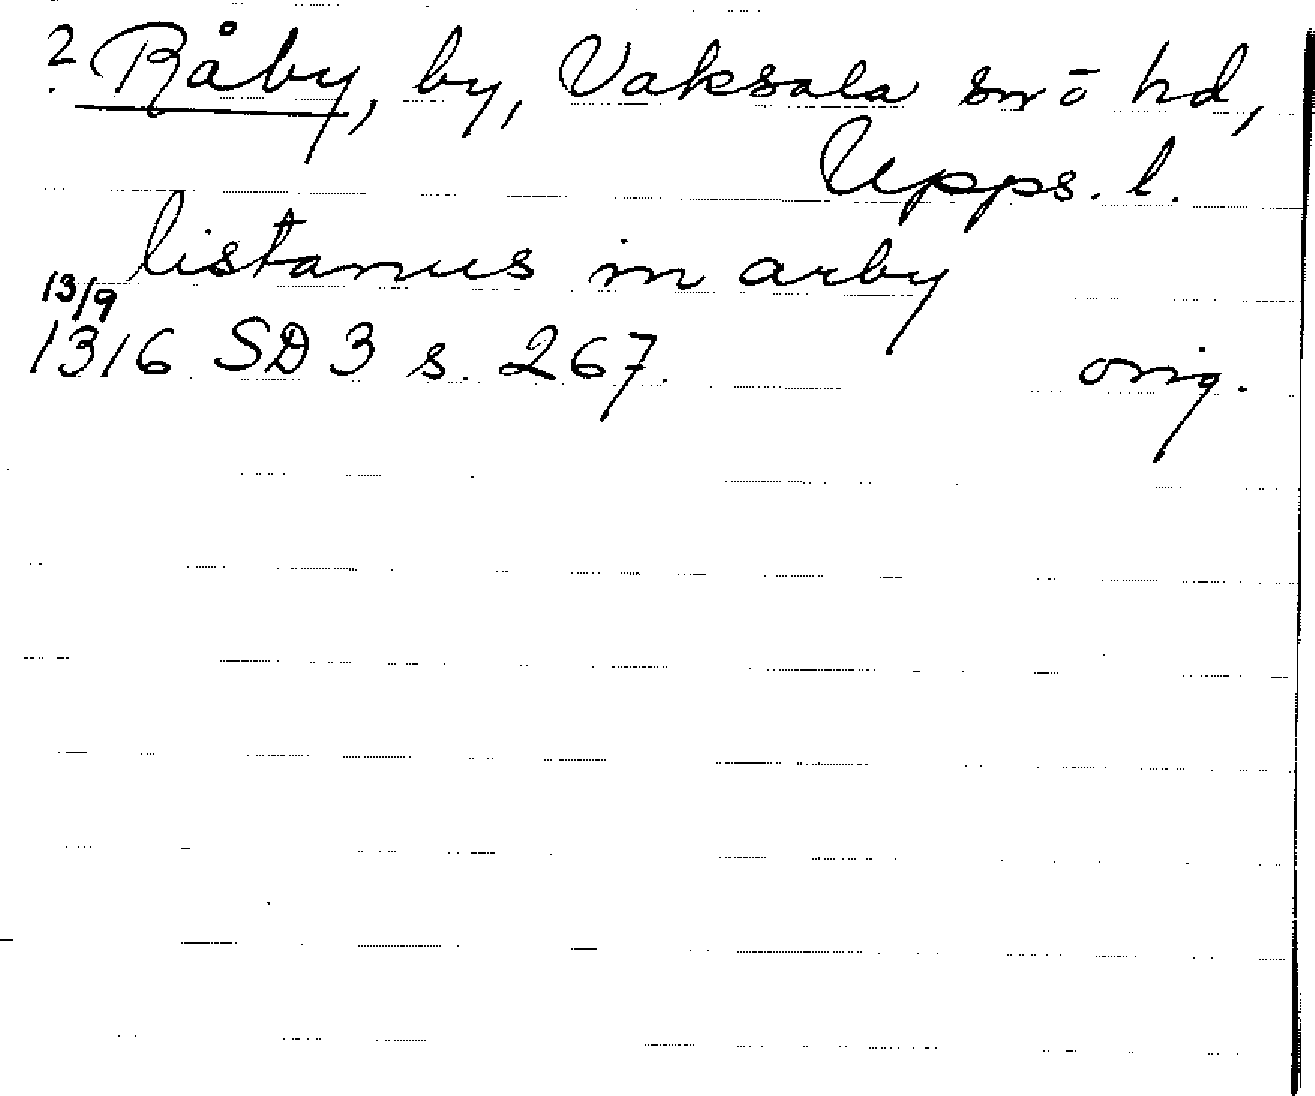 ? Råby, by, Vaksala sn o hd,
Upps. l.
listanus in arby
13/9
1316 SD 3 s. 267. orig.